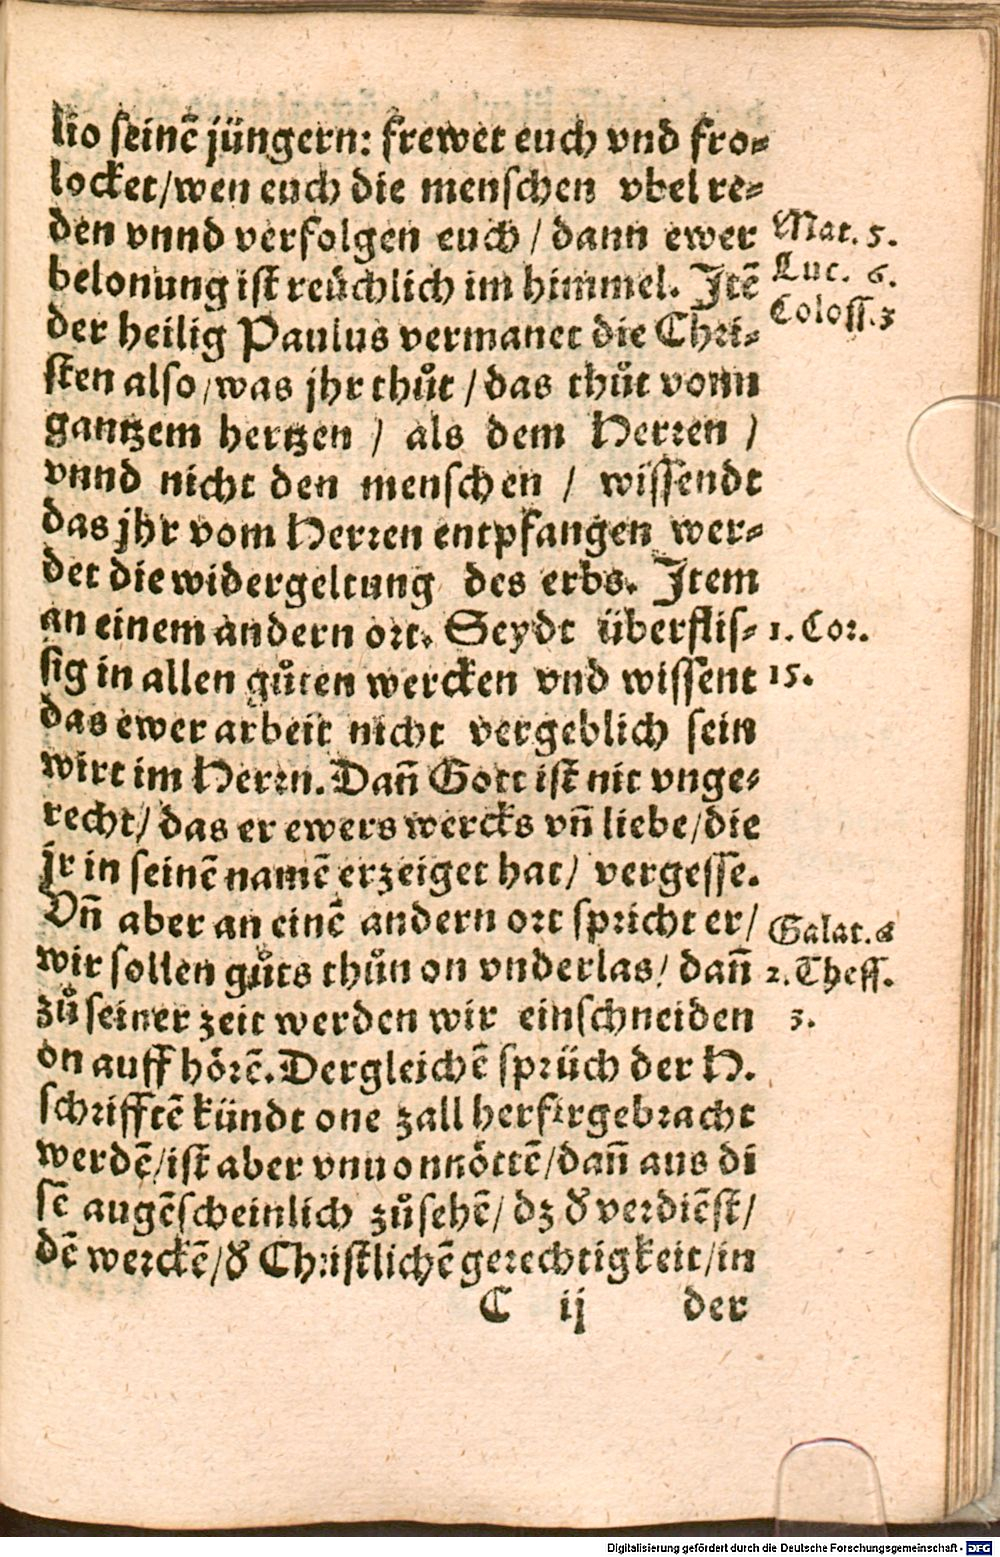 lio seinẽ jüngern: frewet euch vnd fro-
locket/wen euch die menschen vbel re-
den vnnd verfolgen euch / dann ewer
belonung ist reüchlich im himmel. Itẽ
der heilig Paulus vermanet die Chri-
sten also/was jhr thůt / das thůt vonn
gantzem hertzen / als dem Herren /
vnnd nicht den menschen / wissendt
das jhr vom Herren entpfangen wer-
det die widergeltung des erbs. Item
an einem andern ort. Seydt überflis-
sig in allen gůten wercken vnd wissent
das ewer arbeit nicht vergeblich sein
wirt im Herrn. Dañ Gott ist nit vnge-
recht/ das er ewers wercks vñ liebe/die
jr in seinẽ namẽ erzeiget hat/ vergesse.
Vñ aber an einẽ andern ort spricht er/
wir sollen gůts thůn on vnderlas/ dañ
zů seiner zeit werden wir einschneiden
on auff hörẽ. Dergleichẽ sprüch der H.
schrifftẽ kündt one zall herfirgebracht
werdẽ/ist aber vnuonnöttẽ/dañ aus di
sẽ augẽscheinlich zůsehẽ/ dz d' verdiẽst/
dẽ werckẽ/d' Christlichẽ gerechtigkeit/in
C ij der
Mat. 5.
Luc. 6.
Coloss. 3
1. Cor.
15.
Galat. 6
2. Thess.
3.
Digitalisierung gefördert durch die Deutsche Forschungsgemeinschaft - DFG